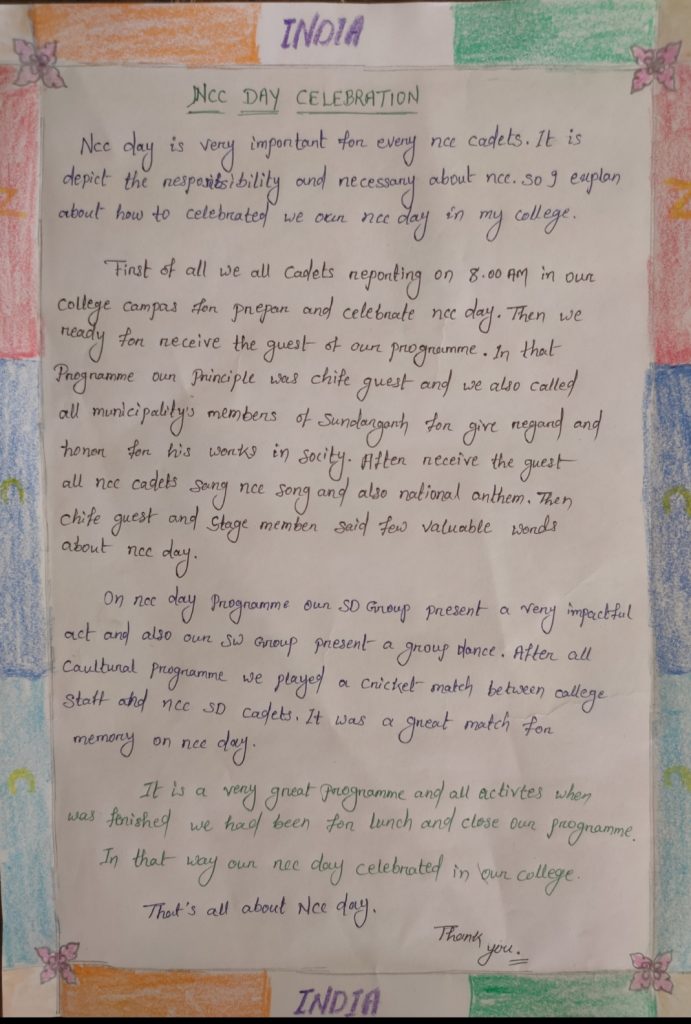 INDIA
NCC DAY CELEBRATION
Ncc day is very important for every ncc cadets. It is
depict the responsibility and necessary about ncc. So I explan
about how to celebrated we our ncc day in my college.
First of all we all Cadets reporting on 8.00 AM in our
college campas for prepar and celebrate ncc day. Then we
ready for receive the guest of our programme. In that
Programme our Principle was chife guest and we also called
all municipality's members of Sundargarh for give regard and
honor for his works in socity. After receive the guest
all ncc cadets sang ncc song and also national anthem. Then
chife guest and Stage member said few valuable words
about ncc day.
On ncc day Programme our SD Group present a very impactful
act and also our SW Group present a group dance. After all
Caultural programme we played a cricket match between college
Staff and ncc SD cadets. It was a great match for
memory on ncc day.
It is a very great programme and all activtes when
was finished we had been for lunch and close our programme.
In that way our ncc day celebrated in our college.
That's all about Ncc day.
Thank
you.
INDIA